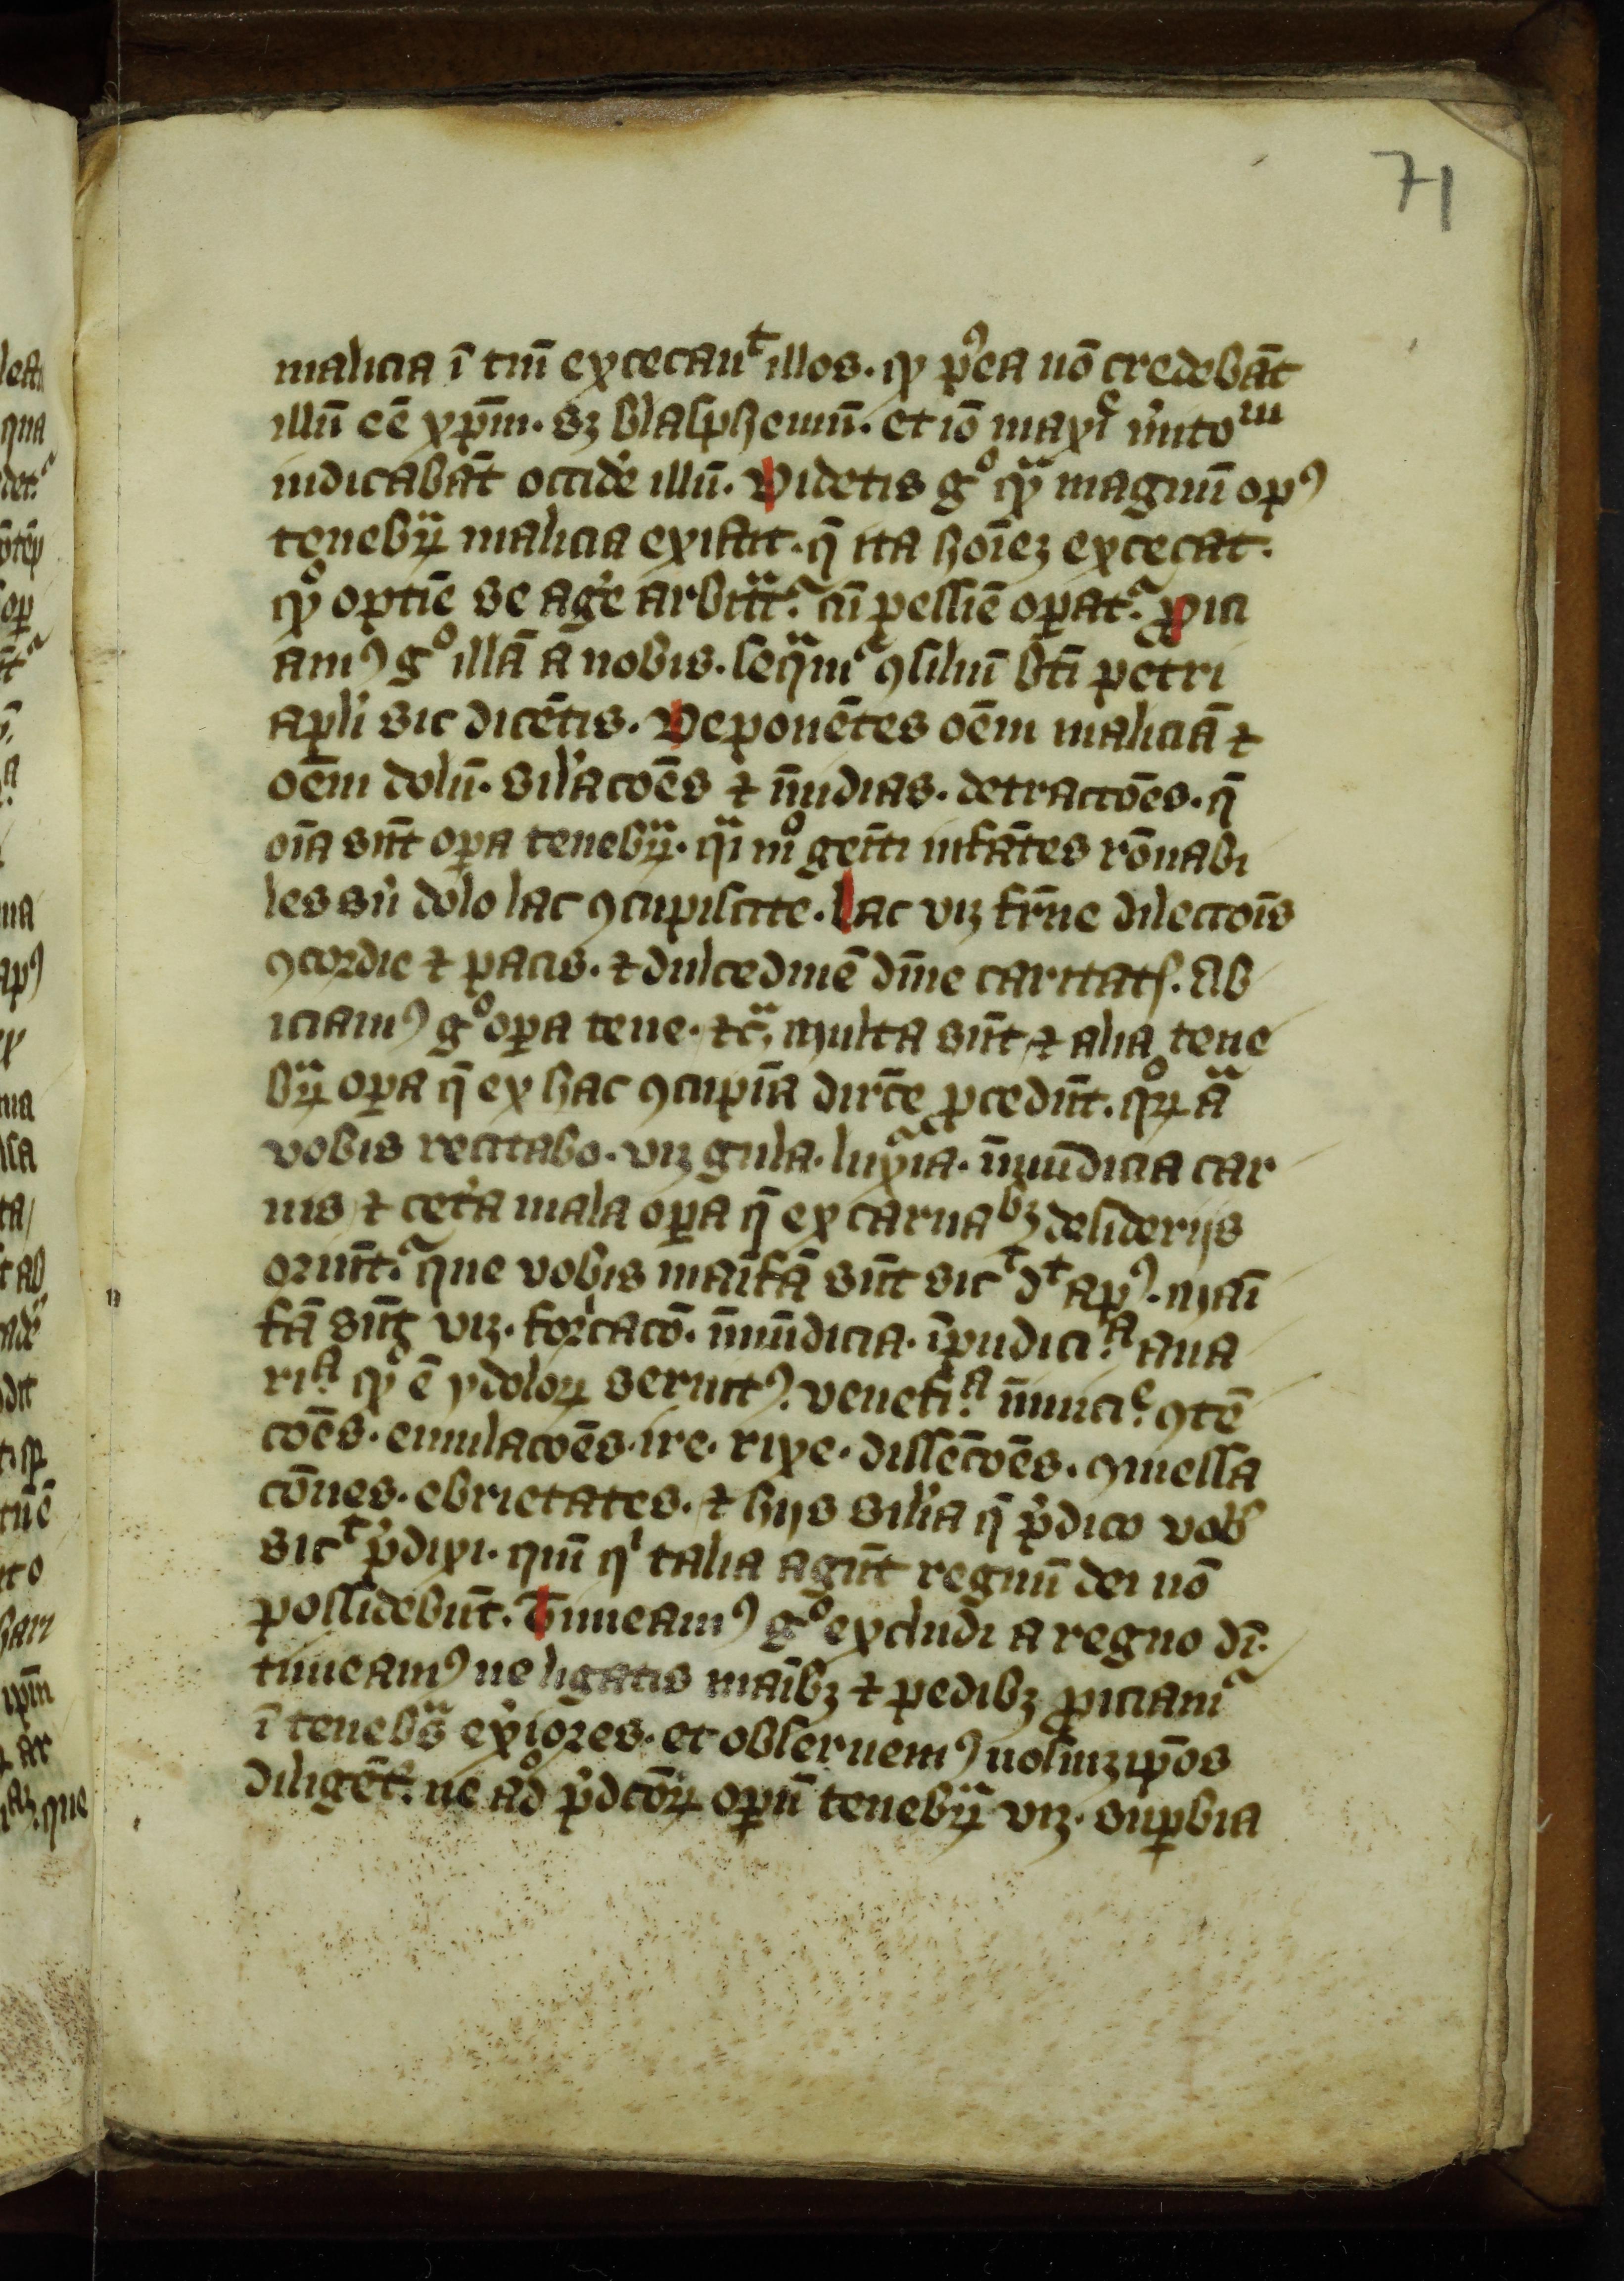 71
malicia ī tm̄ excecauᵗ illos. qͥ pͥea nō credebāt
illū eē xp̄m. sꝫ blasphemū. et iō maxīᵉ mͥitoᵐ
iudicabāt occidͥe illū. Videtis gͦ qᷓ magnū opꝰ
tenebᷓꝝ malicia existit. q̄ ita hoīeꝫ excecat.
qͦ optīe se agͥe arbitᷓt.ᷣ cū pessīe opat.ᷣ ꝓici
amꝰ gͦ illā a nobis. seqᷓmᷣ ꝯsiliū bt̄i petri
apl̄i sic dicētis. Deponētes oēm maliciā ⁊
oēm dolū. silͥacōēs ⁊ īuidias. detraccōēs. q̄
oīa sūt opa tenebᷓꝝ. qᷓi mͦ geīti infātes rōnabi
les sīͥ dolo lac ꝯcupiscite. Lac vꝫ frn̄e dilectōis
ꝯcordie ⁊ pacis. ⁊ dulcedinē dīne caritatꝭ. Ab
iciamꝰ gͦ opa tene. ⁊cᷓ, Multa sūt ⁊ alia tene
bᷓꝝ opa q̄ ex hac ꝯcupīa dirc̄e ꝓcedūt. qͦꝝ aᷓ
vobis recitabo. vꝫ gula. luxͣia. īmūdicia car
nis ⁊ cetͥa mala opa q̄ ex carnaᵇꝫ desiderijs
oriūt.ᷣ que vobis maīfā sūt sicᵗ dᵗ apꝰ. Maī
fā sūt vꝫ. forͥcacō. īmūdicia. īpudiciͣ. aua
riͣ. qͦ ē ydoloꝝ seruitꝰ. venefiͣ. īimiciᵉ. ꝯtē
cōēs. emulacōēs. ire. rixe. dissēcōēs. ꝯmessa
cōnes. ebrietates. ⁊ hijs silͥia q̄ pͥdico vobꝭ
sicᵗ pͥdixi. qm̄ qͥ talia agūt regnū dei nō
possidebūt. Timeamꝰ gͦ excludi a regno dī.
timeamꝰ ne ligatis maībꝫ ⁊ pedibꝫ ꝓiciamᷣ
ī tenebᷓs exͥiores. et obseruemꝰ nosmꝫ ip̄os
diligēt.ͬ ne adͦ pͥdcōꝝ opū tenebᷓꝝ vꝫ. supbia